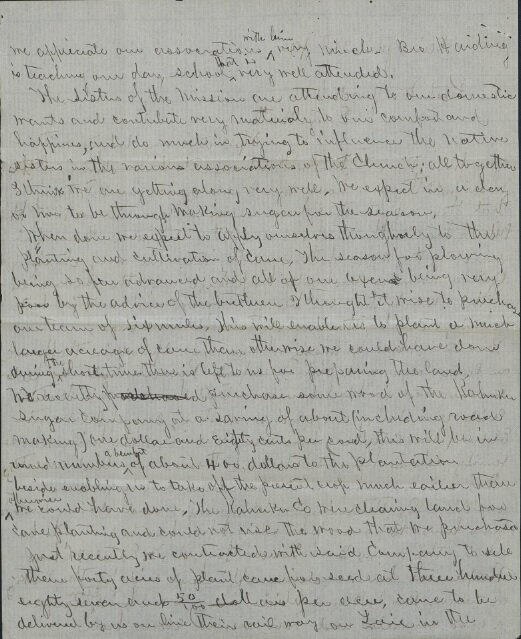 with him
we appreciate our associations very much. Bro Harding
is teaching our day school, that is very well attended.
The sisters of the Mission are attending to our domestic
wants and contribute very materialy to our comfort and
happines, and do much in trying to influence the native
sisters in the various associations of the Church; all together
I think we are getting along very well. We expect in a day
or two to be through making sugar for the season.
When done we expect to apply ourselves thoughorly to the
planting and cultivation of cane, The season for plowing
being so far advanced and all of our oxen being very
poor by the advice of the brethren I thought it wise to purchase
one team of six mules. This will enable us to plant a much
larger acreage of cane than otherwise we could have done
during the short time there is left to us for preparing the land.
We recently purchase some wood of the Kahuku
Sugar Company at a saving of about (including road
making) one dollar and Eighty cents per cord, this will be in
round numbers a benefit of about 400 dollars to the plantation
beside enabling us to take off the present crop much earlier than
otherwise we could have done. The Kahuku Co were clearing land for
cane planting and could not use the wood that we purchased
Just recently we contracted with said Company to sell
them forty acres of plant cane for seed at three hundred
eighty seven and 50/100 dollars per acre, cane to be
delivered by us on line their rail way on Laie in the